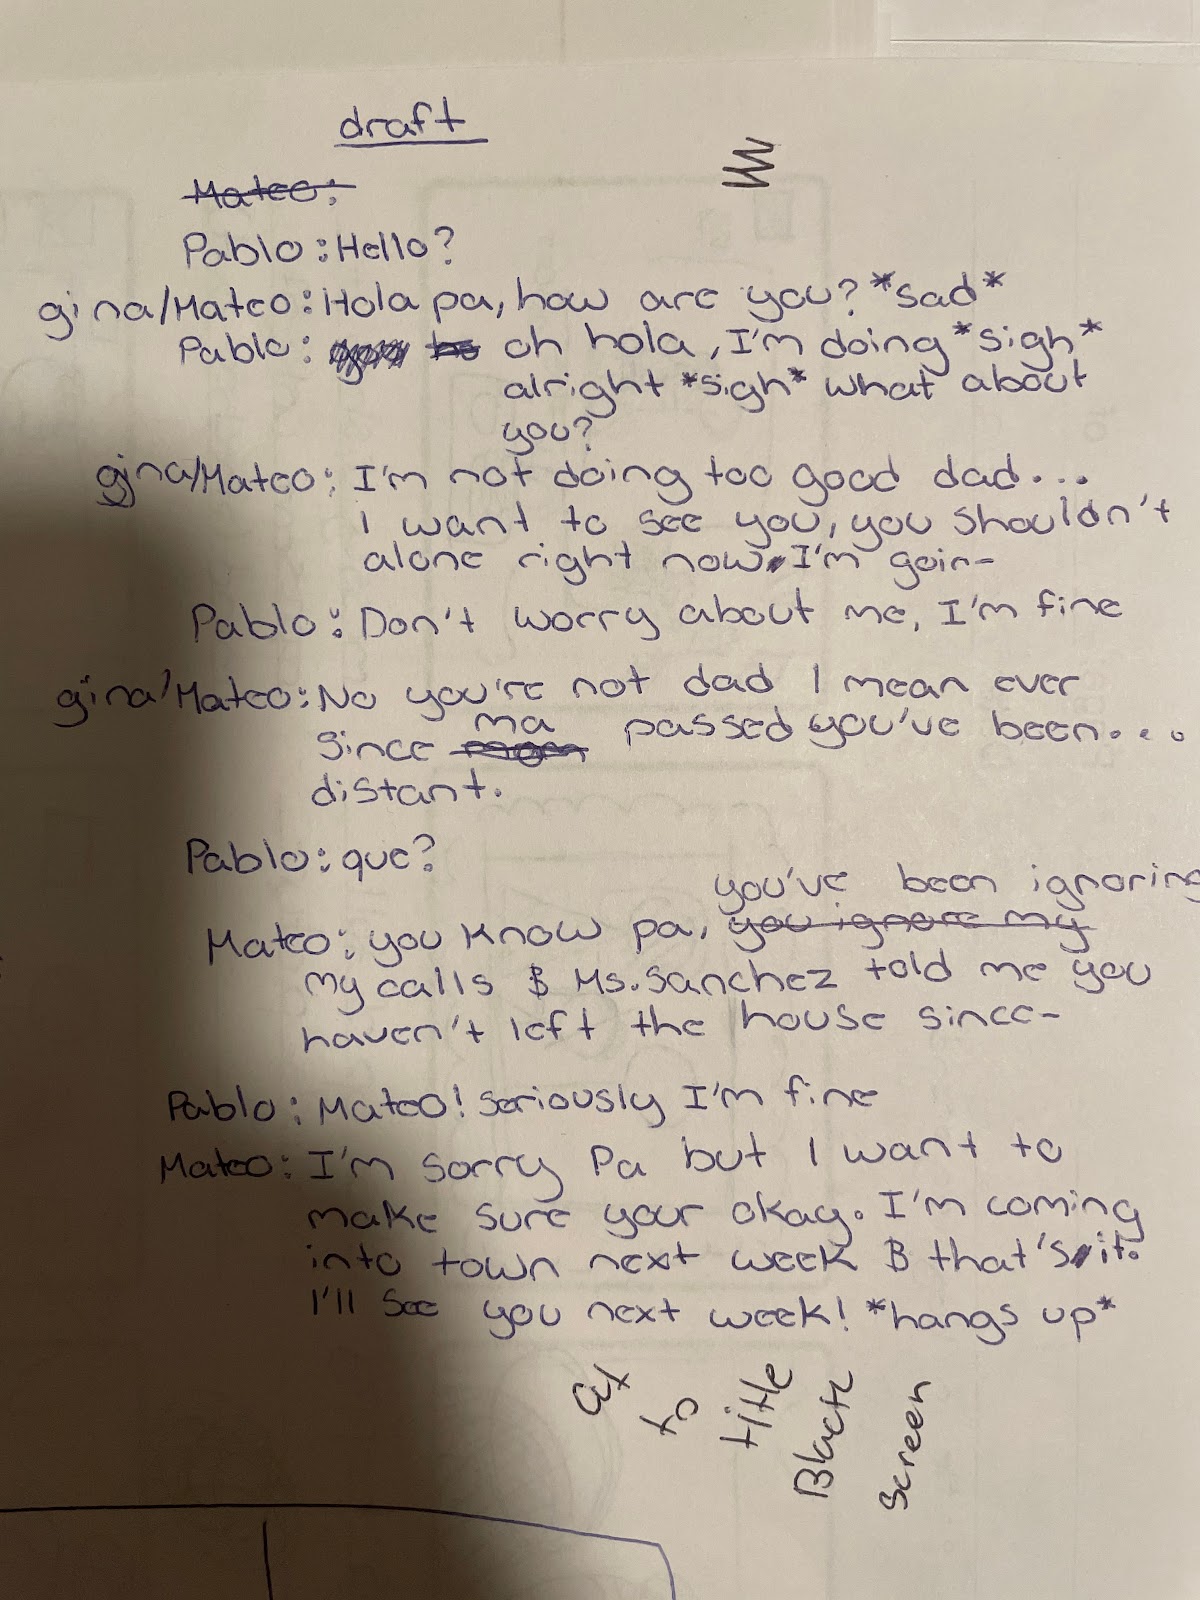 draft
Mateo:
Pablo: Hello?
gina/Mateo: Hola pa, how are you? *sad*
Pablo: oh hola, I'm doing *sigh*
alright *sigh* what about
you?
gina/Mateo: I'm not doing too good dad...
I want to see you, you shouldn't
alone right now. I'm goin-
Pablo: Don't worry about me, I'm fine
gina/Mateo: No you're not dad I mean ever
since mom ma passed you've been...
distant.
Pablo: que?
you've been ignoring
Mateo: you know pa, you ignore my
my calls & Ms. Sanchez told me you
haven't left the house since-
Pablo: Mateo! seriously I'm fine
Mateo: I'm sorry Pa but I want to
make sure your okay. I'm coming
into town next week & that's it.
I'll see you next week! *hangs up*
cut to title Black screen